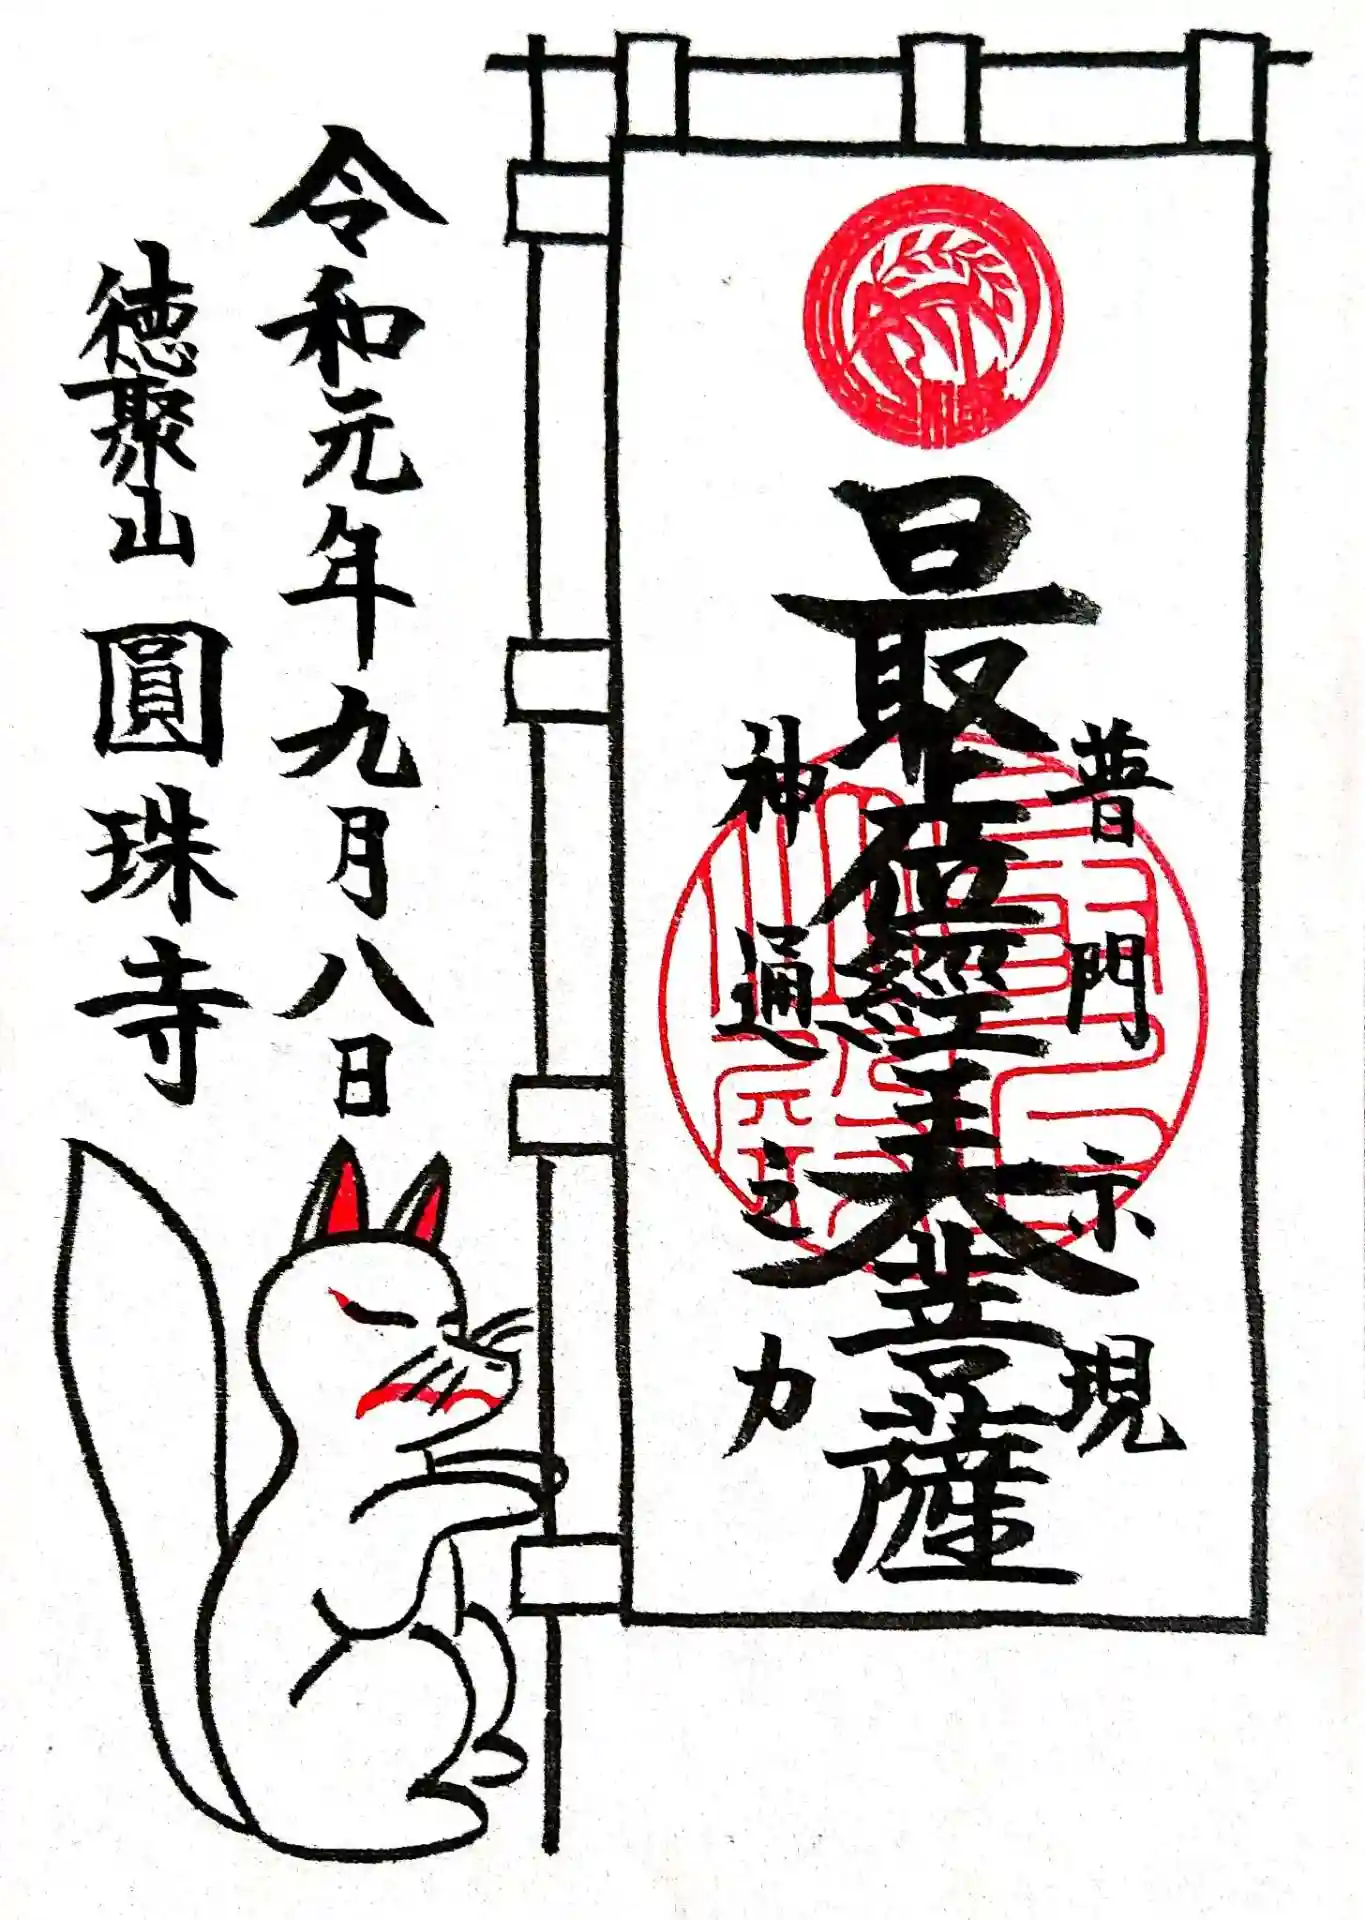 普門示現
最上位經王大菩薩
神通之力
令和元年九月八日
徳聚山 圓珠寺